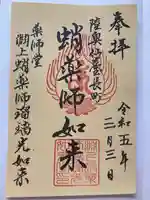 奉拝
陸奥仙臺長町
令和五年
二月三日
蛸薬師如来
薬師堂
渕上蛸薬師瑠璃光如来